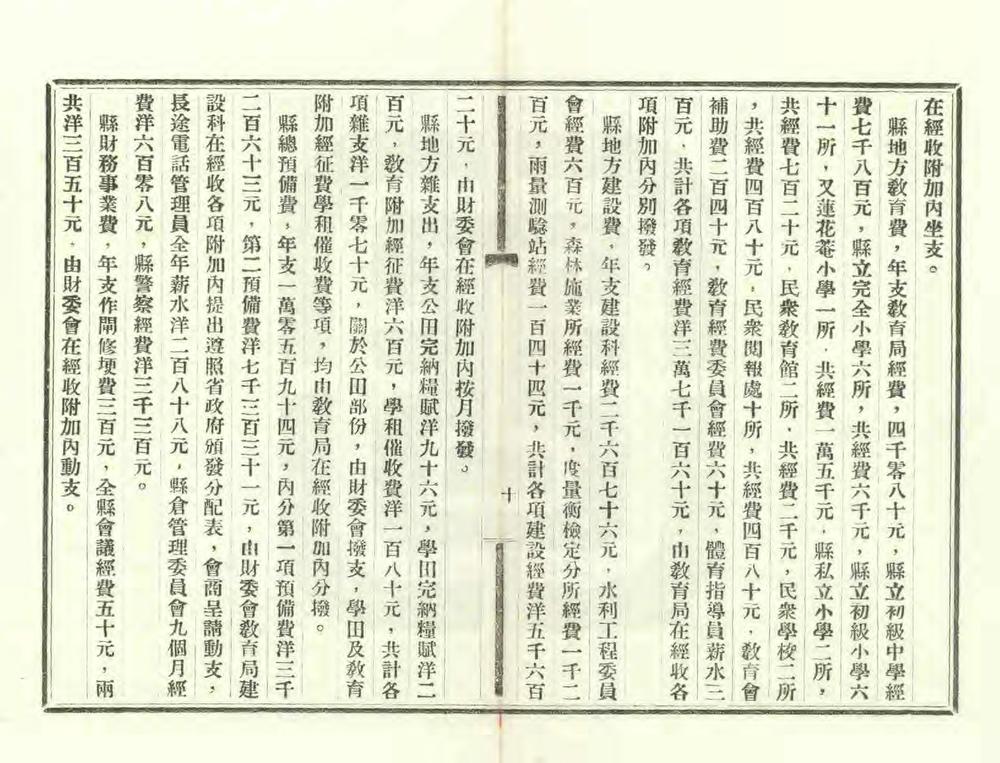 在經收附加內坐支。
縣地方敎育費，年支敎育局經費，四千零八十元，縣立初級中學經
費七千八百元，縣立完全小學六所，共經費六千元，縣立初級小學六
十一所，又蓮花菴小學一所，共經費一萬五千元，縣私立小學二所，
共經費七百二十元，民衆敎育館二所，共經費二千元，民衆學校二所
，共經費四百八十元，民衆閱報處十所，共經費四百八十元，敎育會
補助費二百四十元，敎育經費委員會經費六十元，體育指導員薪水三
百元，共計各項敎育經費洋三萬七千一百六十元，由敎育局在經收各
項附加內分別撥發。
縣地方建設費，年支建設科經費二千六百七十六元，水利工程委員
會經費六百元，森林施業所經費一千元，度量衡檢定分所經費一千二
百元，雨量測驗站經費一百四十四元，共計各項建設經費洋五千六百
十
二十元，由財委會在經收附加內按月撥發。
縣地方雜支出，年支公田完納糧賦洋九十六元，學田完納糧賦洋二
百元，敎育附加經征費洋六百元，學租催收費洋一百八十元，共計各
項雜支洋一千零七十元，關於公田部份，由財委會撥支，學田及敎育
附加經征費學租催收費等項，均由敎育局在經收附加內分撥。
縣總預備費，年支一萬零五百九十四元，內分第一項預備費洋三千
二百六十三元，第二預備費洋七千三百三十一元，由財委會敎育局建
設科在經收各項附加內提出遵照省政府頒發分配表，會商呈請動支，
長途電話管理員全年薪水洋二百八十八元，縣倉管理委員會九個月經
費洋六百零八元，縣警察經費洋三千三百元。
縣財務事業費，年支作閘修埂費三百元，全縣會議經費五十元，兩
共洋三百五十元，由財委會在經收附加內動支。